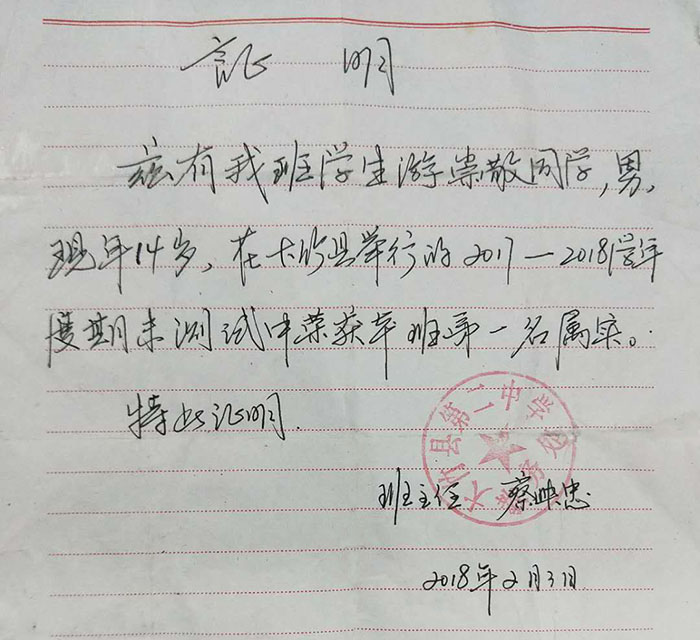 证 明
兹有我班学生游崇散同学,男,
现年14岁,在大竹县举行的2017—2018学年
度期末测试中荣获本班第一名属实。
特此证明.
大竹县第二中学
教务处
班主任 蔡映忠
2018年2月3日